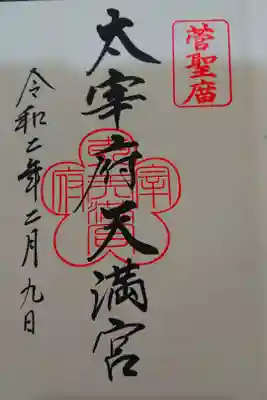 菅聖庿
太宰府天満宮
令和二年二月九日